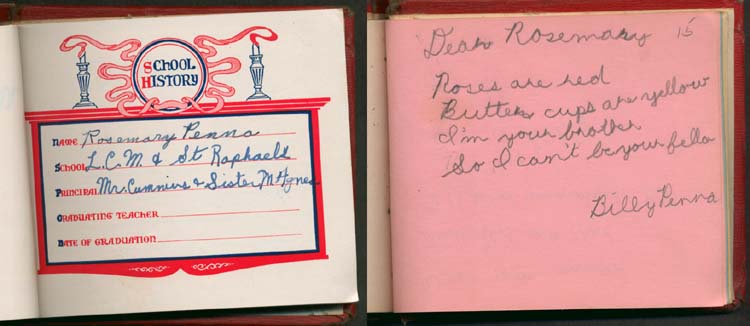 SCHOOL
HISTORY
NAME Rosemary Penna
SCHOOL L.C.M & St Raphaels
PRINCIPAL Mr. Cummins & Sister M Agnes
GRADUATING TEACHER
DATE OF GRADUATION
15
Dear Rosemary
Roses are red
Butter cups are yellow
I'm your brother
So I can't be your fella
Billy Penna